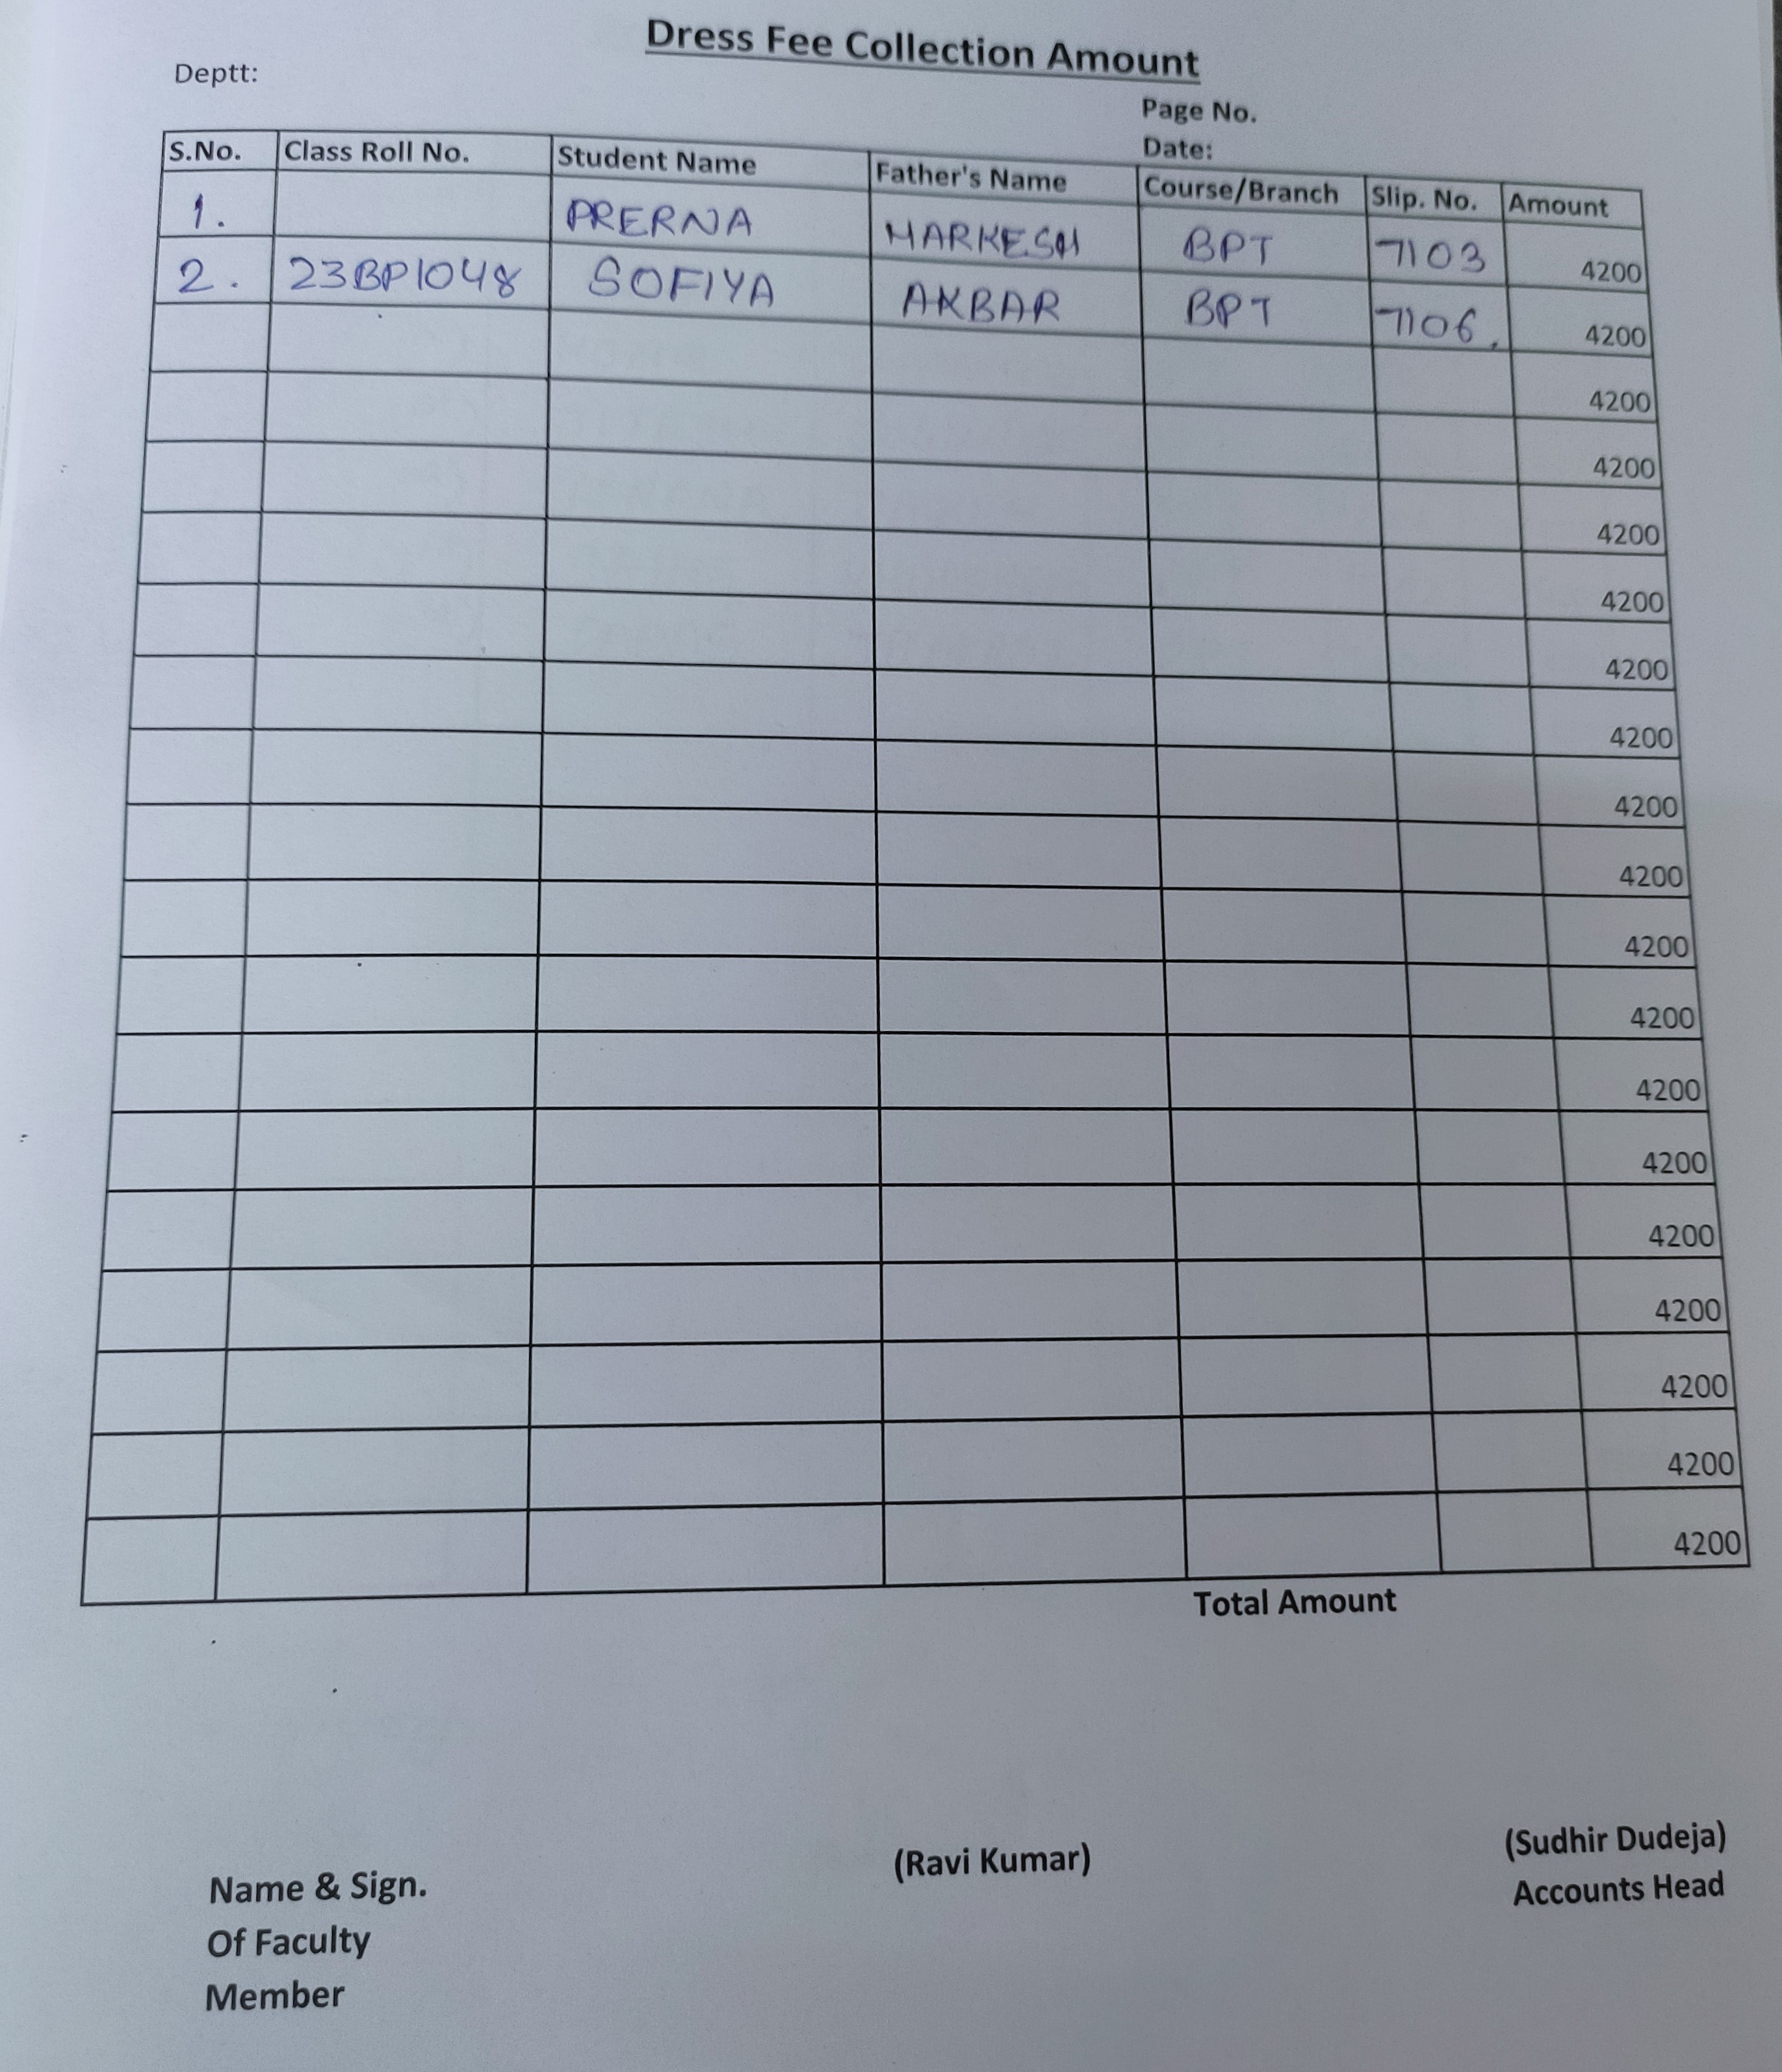 Dress Fee Collection Amount
Deptt:
Page No.
Date:
S.No. Class Roll No. Student Name Father's Name Course/Branch Slip. No. Amount
1. PRERNA HARKESH BPT 7103 4200
2. 23BP1048 SOFIYA AKBAR BPT 7106. 4200
4200
4200
4200
4200
4200
4200
4200
4200
4200
4200
4200
4200
4200
4200
4200
4200
4200
Total Amount
Name & Sign. (Ravi Kumar) (Sudhir Dudeja)
Of Faculty Accounts Head
Member